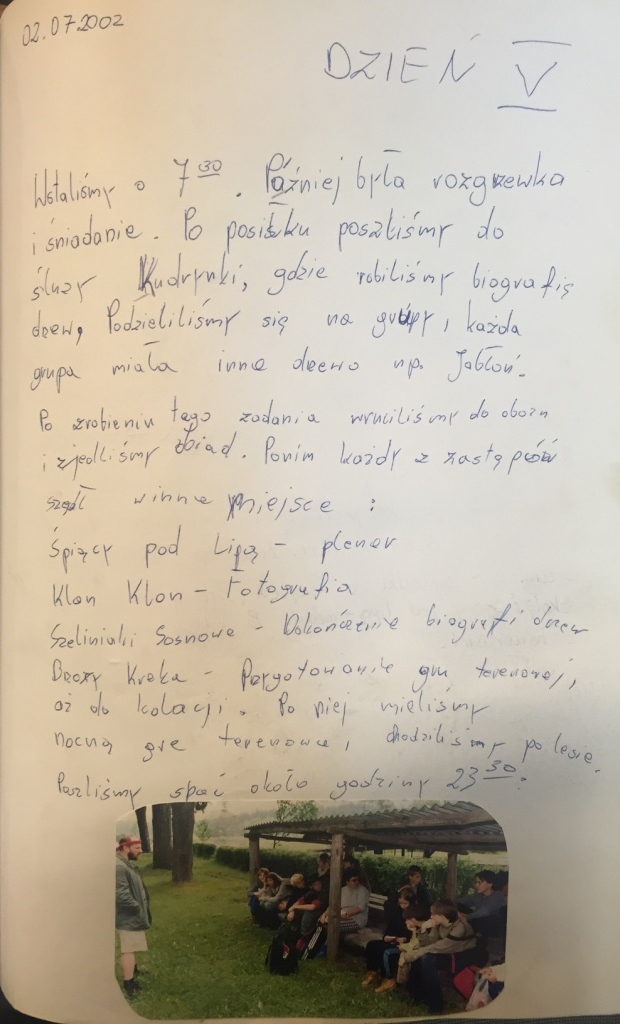 02.07.2002
DZIEŃ V
Wstaliśmy o 7 30. Później była rozgrzewka
i śniadanie. Po posiłku poszliśmy do
śluzy Kudrynki, gdzie robiliśmy biografię
drzew, Podzieliliśmy się na grupy, każda
grupa miała inne drzewo np. Jabłoń.
Po zrobieniu tego zadania wruciliśmy do obozu
i zjedliśmy obiad. Ponim każdy z zastępów
szedł winne miejsce :
Śpiący pod Lipą - plener
Klan Klon - Fotografia
Szeliniaki Sosnowe - Dokończenie biografi drzew
Brozy Kreka - Przygotowanie gry terenowej,
aż do kolacji. Po niej mieliśmy
nocną gre terenową, chodziliśmy po lesie.
Poszliśmy spać około godziny 23 30.